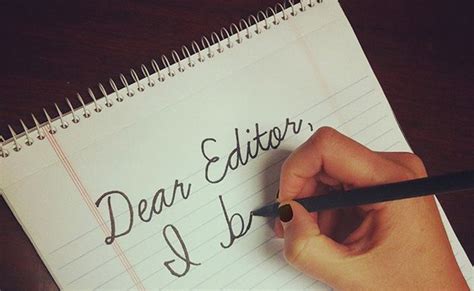 Dear Editor,
I b